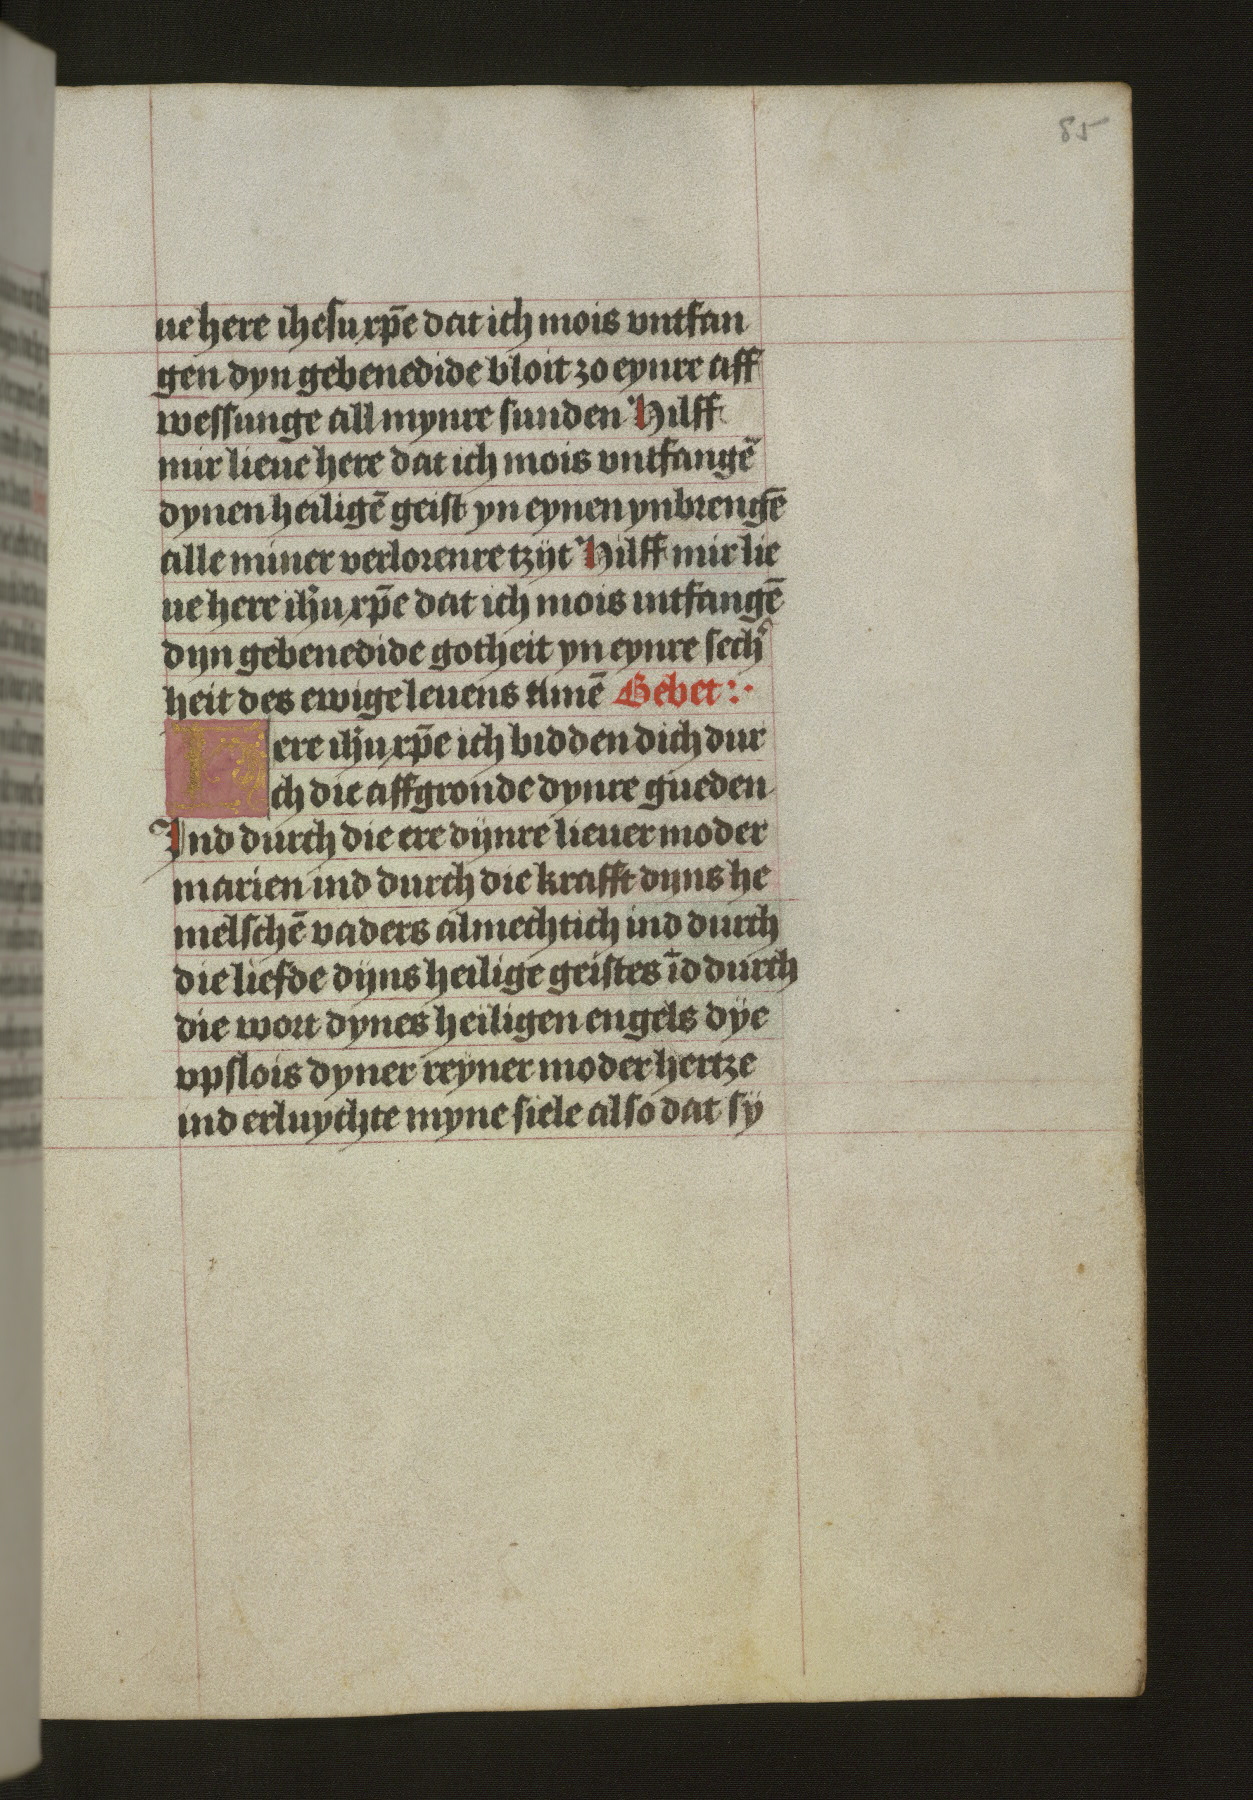 85
ue here ihesu xp̄e dat ich mois vntfan
gen dyn gebenedide bloit zo eynre aff
wessunge all mynre sunden Hilff
mir lieue here dat ich mois vntfangē
dynen heiligē geist yn eynen ynbrengē
alle miner verlorenre tzijt Hilff mir lie
ue here ih̄u xp̄e dat ich mois untfangē
dijn gebenedide gotheit yn eynre sechꝰ
heit des ewige leuens Amē Gebet :·
Here ih̄u xp̄e ich bidden dich dur
ch die affgronde dynre gueden
Ind durch die ere dijnre lieuer moder
marien ind durch die krafft dijns he
melschē vaders almechtich ind durch
die liefde dijns heilige geistes īd durch
die wort dynes heiligen engels dÿe
vpslois dyner reyner moder hertze
ind erluychte myne siele also dat sÿ